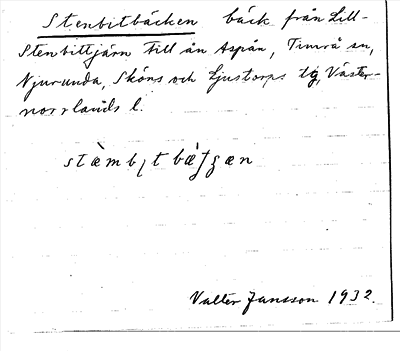 Stenbitbäcken bäck från Lill-
Stenbittjärn till ån Aspån, Timrå sn,
Njurunda, Sköns och Ljustorps tg, Väster-
norrlands l.
Valter Jansson 1932.